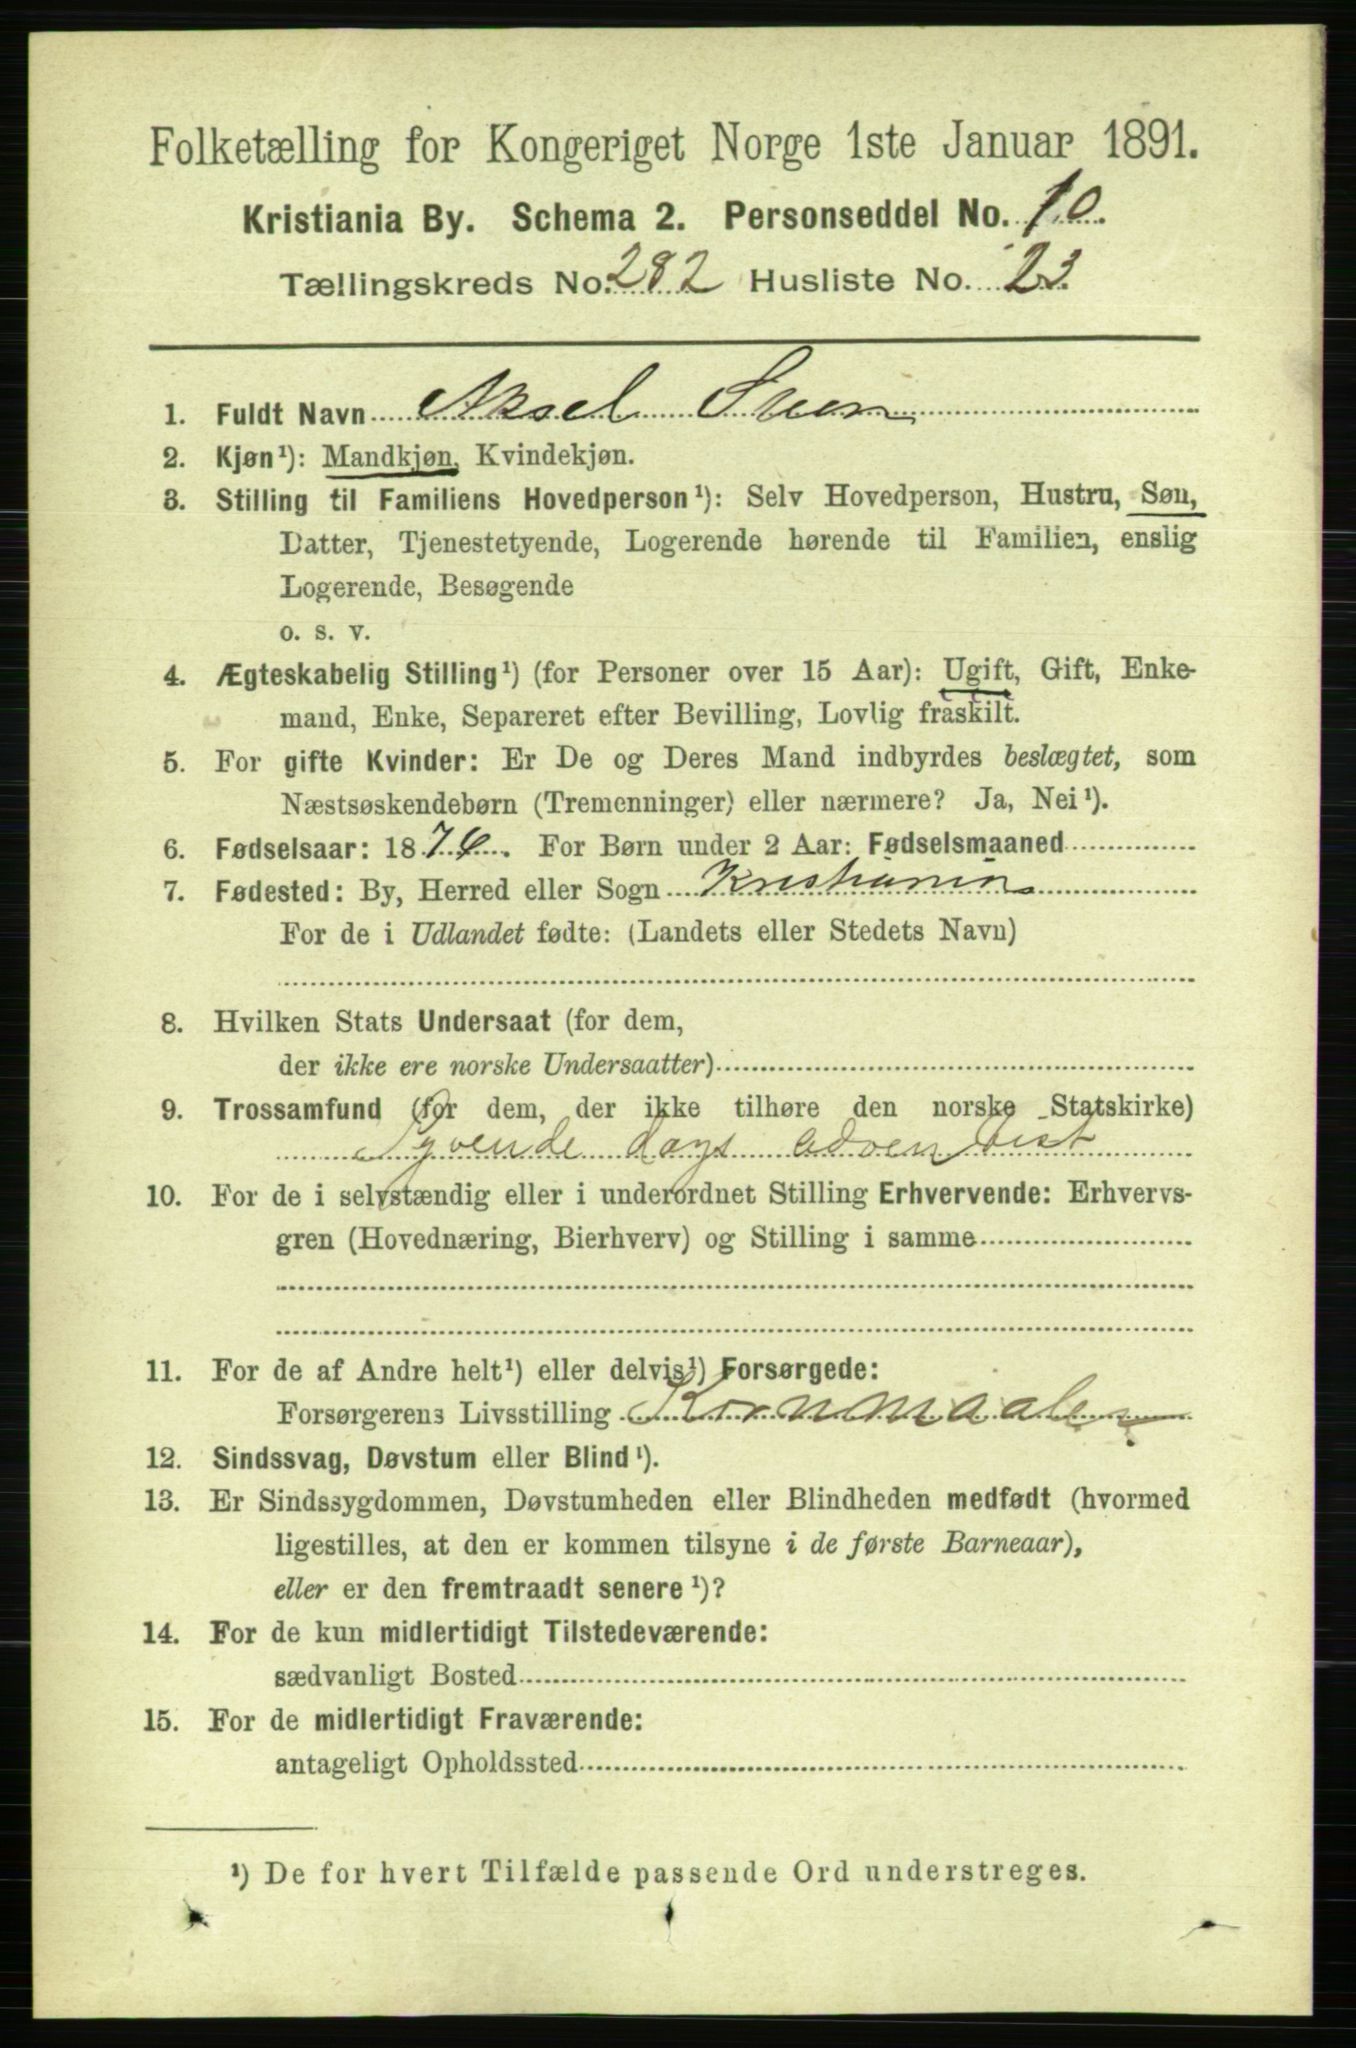 Folketælling for Kongeriget Norge 1ste Januar 1891.
Kristiania By. Schema 2. Personseddel No. 10.
Tællingskreds No. 282 Husliste No. 23.
1. Fuldt Navn Aksel Steen
2. Kjøn¹): Mandkjøn, Kvindekjøn.
3. Stilling til Familiens Hovedperson¹): Selv Hovedperson, Hustru, Søn,
Datter, Tjenestetyende, Logerende hørende til Familien, enslig
Logerende, Besøgende
o. s. v.
4. Ægteskabelig Stilling¹) (for Personer over 15 Aar): Ugift, Gift, Enke-
mand, Enke, Separeret efter Bevilling, Lovlig fraskilt.
5. For gifte Kvinder: Er De og Deres Mand indbyrdes beslægtet, som
Næstsøskendebørn (Tremenninger) eller nærmere? Ja, Nei¹).
6. Fødselsaar: 1876. For Børn under 2 Aar: Fødselsmaaned
7. Fødested: By, Herred eller Sogn Kristiania
For de i Udlandet fødte: (Landets eller Stedets Navn)
8. Hvilken Stats Undersaat (for dem,
der ikke ere norske Undersaatter)
9. Trossamfund (for dem, der ikke tilhøre den norske Statskirke)
Syvende dags advendtist
10. For de i selvstændig eller i underordnet Stilling Erhvervende: Erhvervs-
gren (Hovednæring, Bierhverv) og Stilling i samme
11. For de af Andre helt¹) eller delvis¹) Forsørgede:
Forsørgerens Livsstilling Kornmaaler
12. Sindssvag, Døvstum eller Blind¹).
13. Er Sindssygdommen, Døvstumheden eller Blindheden medfødt (hvormed
ligestilles, at den er kommen tilsyne i de første Barneaar),
eller er den fremtraadt senere¹)?
14. For de kun midlertidigt Tilstedeværende:
sædvanligt Bosted
15. For de midlertidigt Fraværende:
antageligt Opholdssted
¹) De for hvert Tilfælde passende Ord understreges.